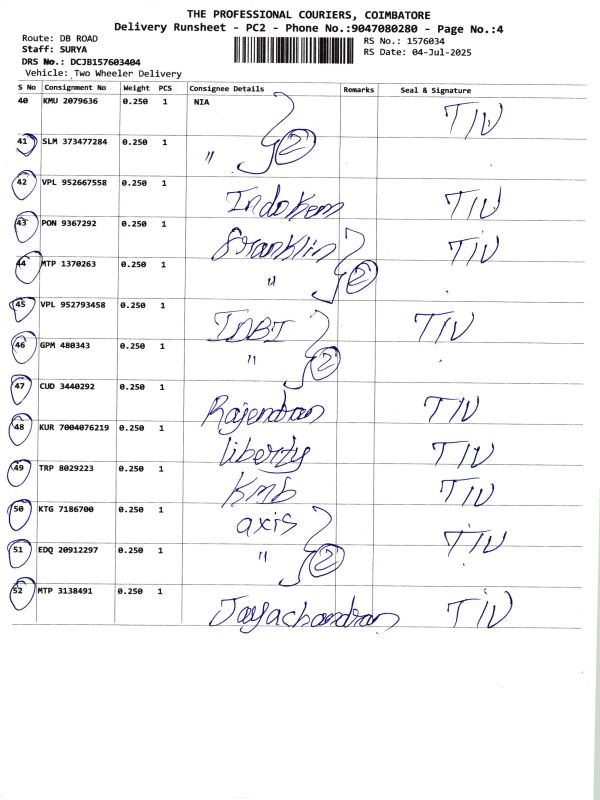 THE PROFESSIONAL COURIERS, COIMBATORE
Delivery Runsheet - PC2 - Phone No.:9047080280 - Page No.:4
Route: DB ROAD RS No.: 1576034
Staff: SURYA RS Date: 04-Jul-2025
DRS No.: DCJB157603404
Vehicle: Two Wheeler Delivery
S No Consignment No Weight PCS Consignee Details Remarks Seal & Signature
40 KMU 2079636 0.250 1 NIA TIV
41 SLM 373477284 0.250 1 " 2
42 VPL 952667558 0.250 1 Indokem TIV
43 PON 9367292 0.250 1 franklin TIV
44 MTP 1370263 0.250 1 " 2
45 VPL 952793458 0.250 1 INBI TIV
46 GPM 480343 0.250 1 " 2
47 CUD 3440292 0.250 1 Rajendran TIV
48 KUR 7004076219 0.250 1 liberty TIV
49 TRP 8029223 0.250 1 Kmb TIV
50 KTG 7186700 0.250 1 axis TIV
51 EDQ 20912297 0.250 1 " 2
52 MTP 3138491 0.250 1 Jayachandran TIV